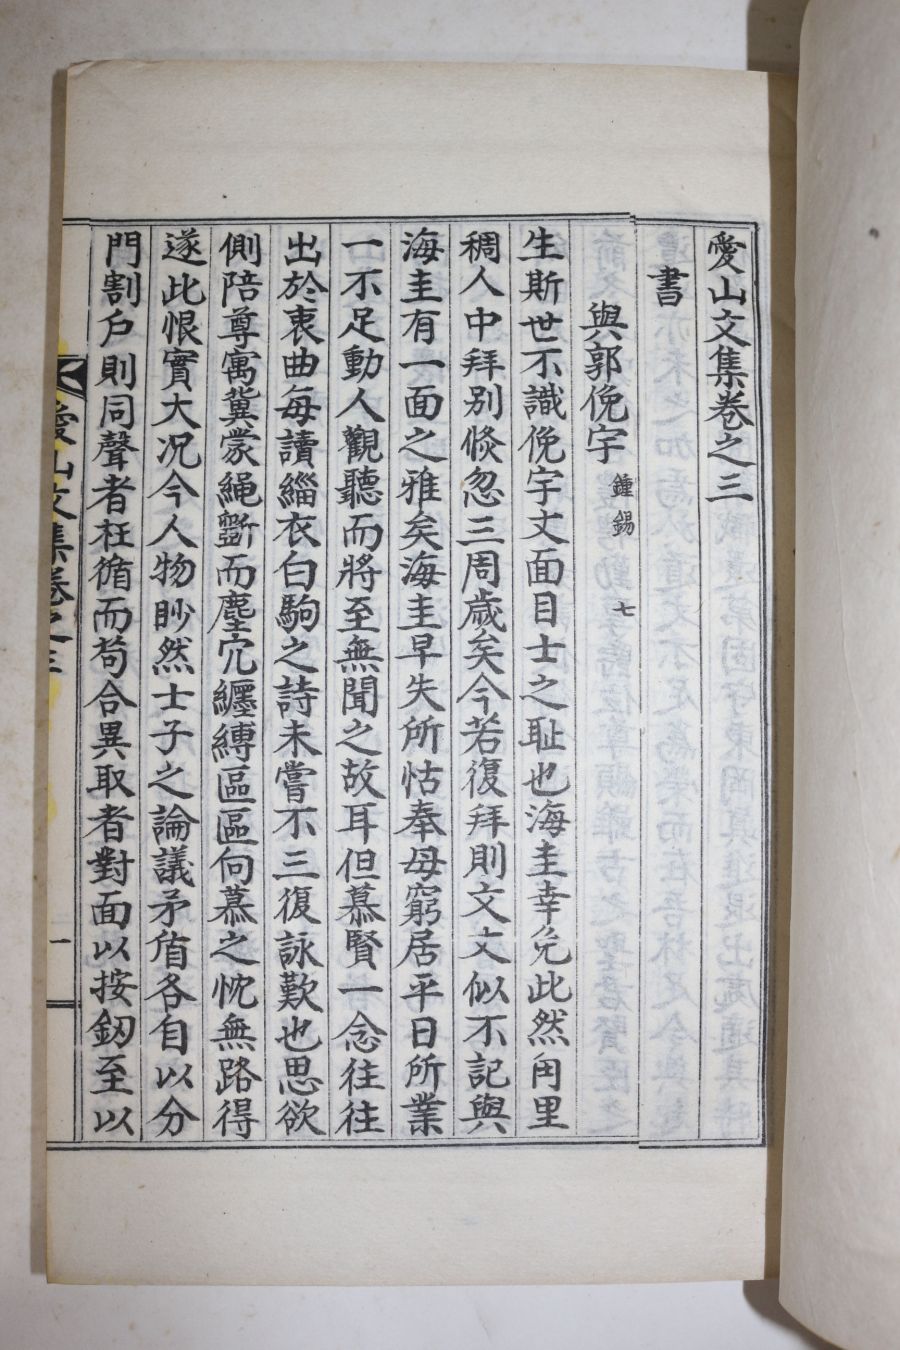 愛山文集卷之三
書
與郭俛宇 鍾錫 七
生斯世不識俛宇丈面目士之耻也海圭幸免此然甪里
稠人中拜別倏忽三周歲矣今若復拜則文丈似不記與
海圭有一面之雅矣海圭早失所怙奉母窮居平日所業
一不足動人觀聽而將至無聞之故耳但慕賢一念往往
出於衷曲每讀緇衣白駒之詩未嘗不三復詠歎也思欲
側陪尊寓冀蒙繩斲而塵宂纒縛區區向慕之忱無路得
遂此恨實大况今人物眇然士子之論議矛盾各自以分
門割户則同聲者枉循而苟合異取者對面以按釰至以
愛山文集卷之三
一